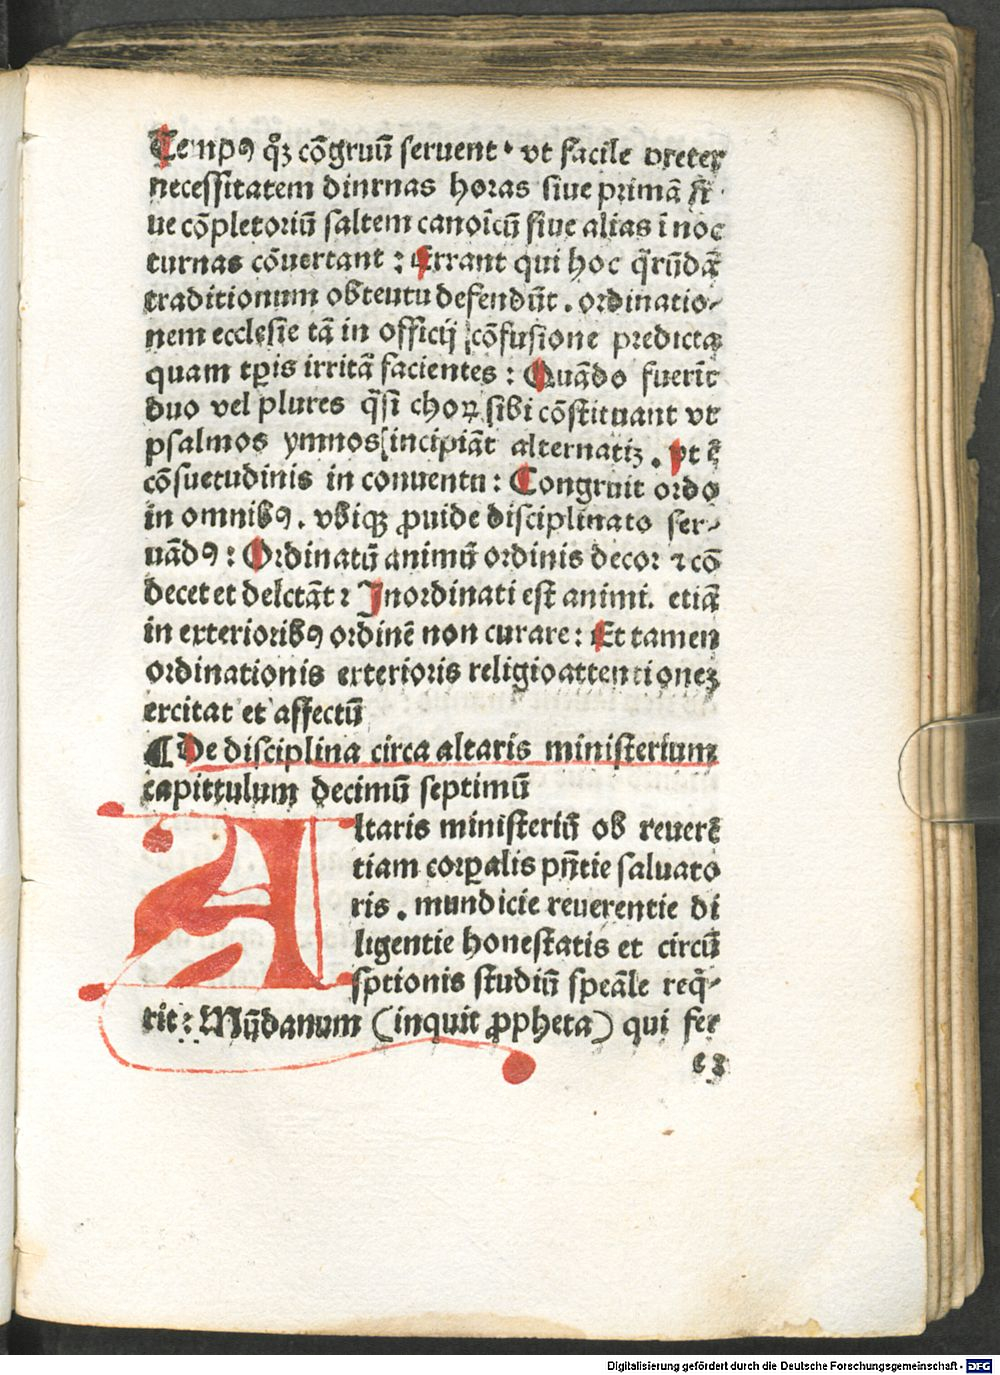 Tempꝰ qͦꝫ cōgruū seruent · vt facile preter
necessitatem diurnas horas siue primā si
ue cōpletoriū saltem canoīcū siue alias ī noc
turnas cōuertant : Errant qui hoc q̄rūdā
traditionum obtentu defendūt . ordinatio⸗
nem ecclesie tā in officij cōfusione predicta
quam tꝑis irritā facientes : Quādo fuerīt
duo vel plures q̄si choꝝ sibi cōstituant vt
psalmos ymnos incipiāt alternatiꝫ . vt ē
cōsuetudinis in conuentu : Congruit ordo
in omnibꝰ . vbiqꝫ ꝓuide disciplinato ser⸗
uādꝰ : Ordinatū animū ordinis decor ⁊ cō
decet et delctāt : Inordinati est animi . etiā
in exterioribꝰ ordinē non curare : Et tamen
ordinationis exterioris religio attentionez
ercitat et affectū
¶ De disciplina circa altaris ministerium
capittulum decimū septimū
Altaris ministeriū ob reuerē
tiam corꝑalis pn̄tie saluato
ris . mundicie reuerentie di
ligentie honestatis et circū
sptionis studiū speāle req̄⸗
rit : Mūdanum (inquit ꝓpheta) qui fer
e3
Digitalisierung gefördert durch die Deutsche Forschungsgemeinschaft - DFG